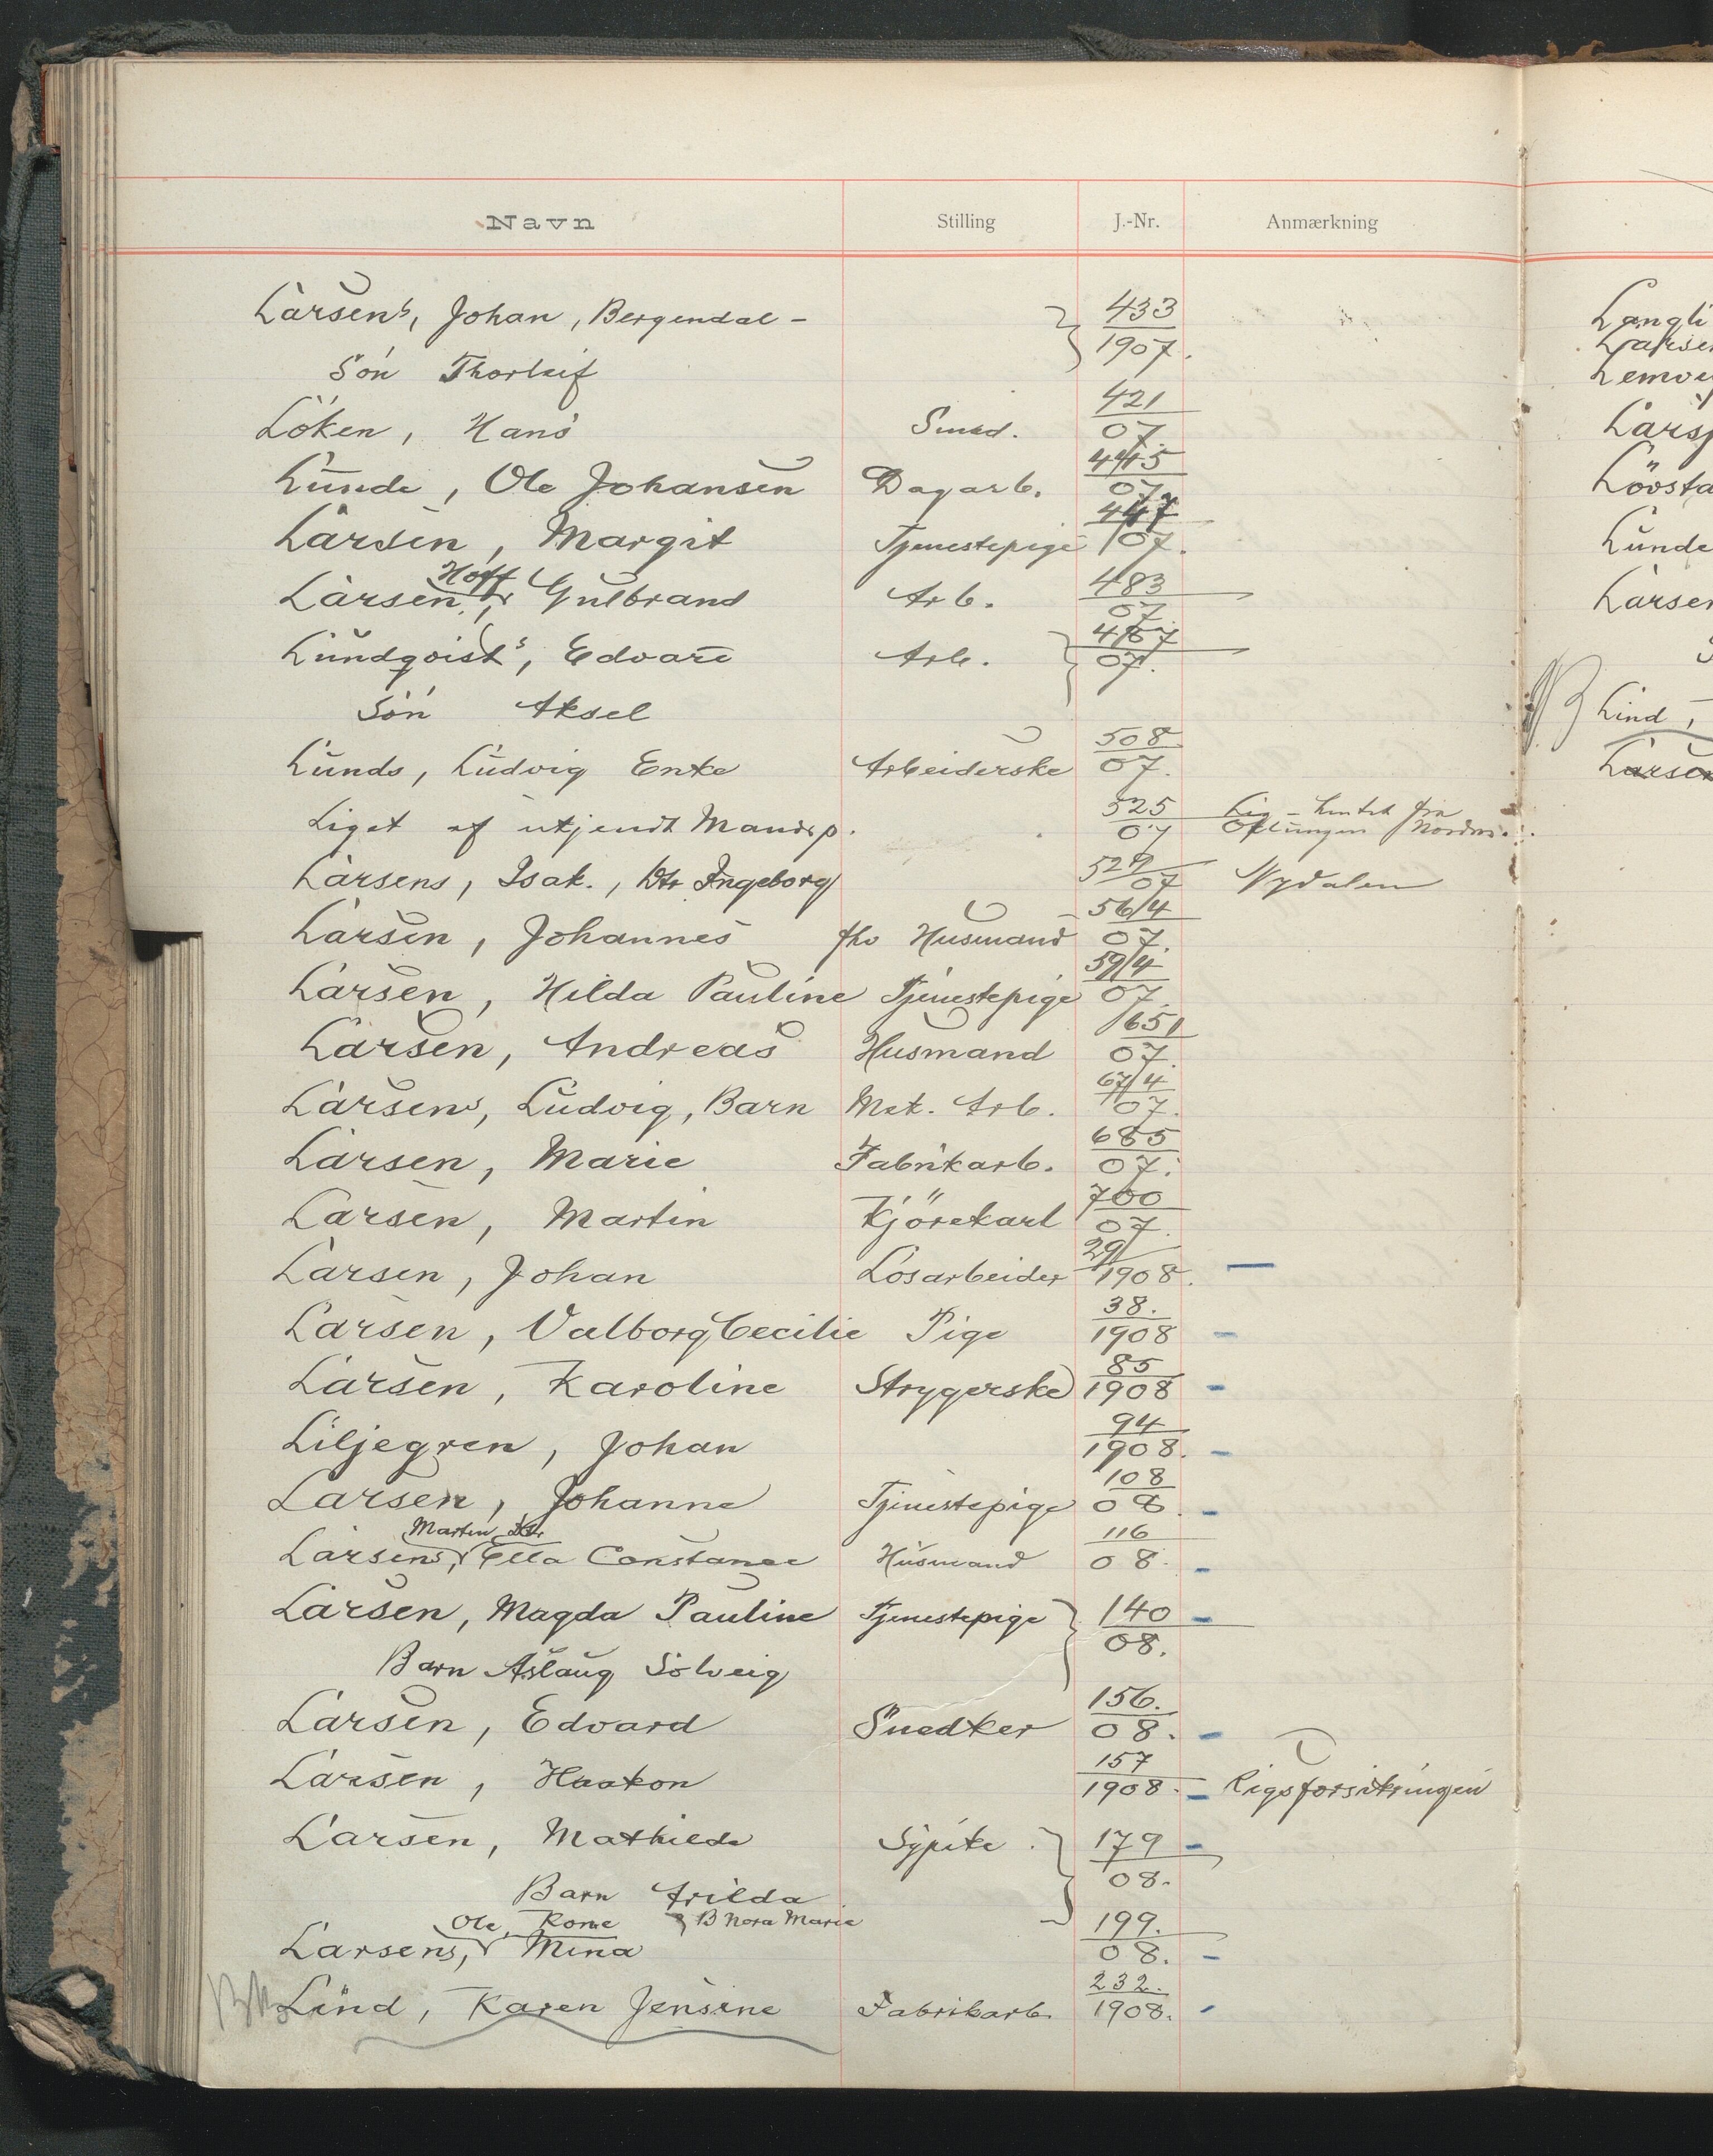 Navn Stilling J.-Nr. Anmærkning
Larsens, Johan, Bergendal - 433/1907.
Sön Thorleif
Löken, Hans Smed. 421/07.
Lunde, Ole Johansen Dagarb. 445/07
Larsen, Margit Tjenestepige 447/07.
Larsen, Hoff Gulbrand Arb. 483/07
Lundqvist's, Edvard Arb. 487/07.
Sön Aksel
Lunds, Ludvig Enke Arbeiderske 508/07.
Liget af utjendt Mandsp. 525/07 Lig - hentet fra
Larsens, Isak., Dtr Ingeborg 07 Nydalen
Larsen, Johannes fhv Husmand 564/07.
Larsen, Hilda Pauline Tjenestepige 594/07.
Larsen, Andreas Husmand 651/07
Larsens, Ludvig, Barn Mek. Arb. 674/07.
Larsen, Marie Fabrikarb. 685/07.
Larsen, Martin Kjörekarl 700/07.
Larsen, Johan Lösarbeider 29/1908. —
Larsen, Valborg Cecilie Pige 38./1908 -
Larsen, Karoline Strygerske 85/1908 -
Liljegren, Johan 94/1908. -
Larsen, Johanne Tjenestepige 108/08. -
Larsens, Martin Dtr Ella Constance Husmand 116/08. -
Larsen, Magda Pauline Tjenestepige 140/08. -
Barn Aslaug Solveig
Larsen, Edvard Snedker 156./08. -
Larsen, Haakon 157/1908. - Rigsforsikringen
Larsen, Mathilde Sypike 179/08. -
Barn Arilda
& B Nora Marie
Larsens, Ole, Kone Mina 199./08. -
Lind, Karen Jensine Fabrikarb. 232./1908. -
Langli
Larsen
Lövsta
Lunde
Larsen
Lind,
Larsen